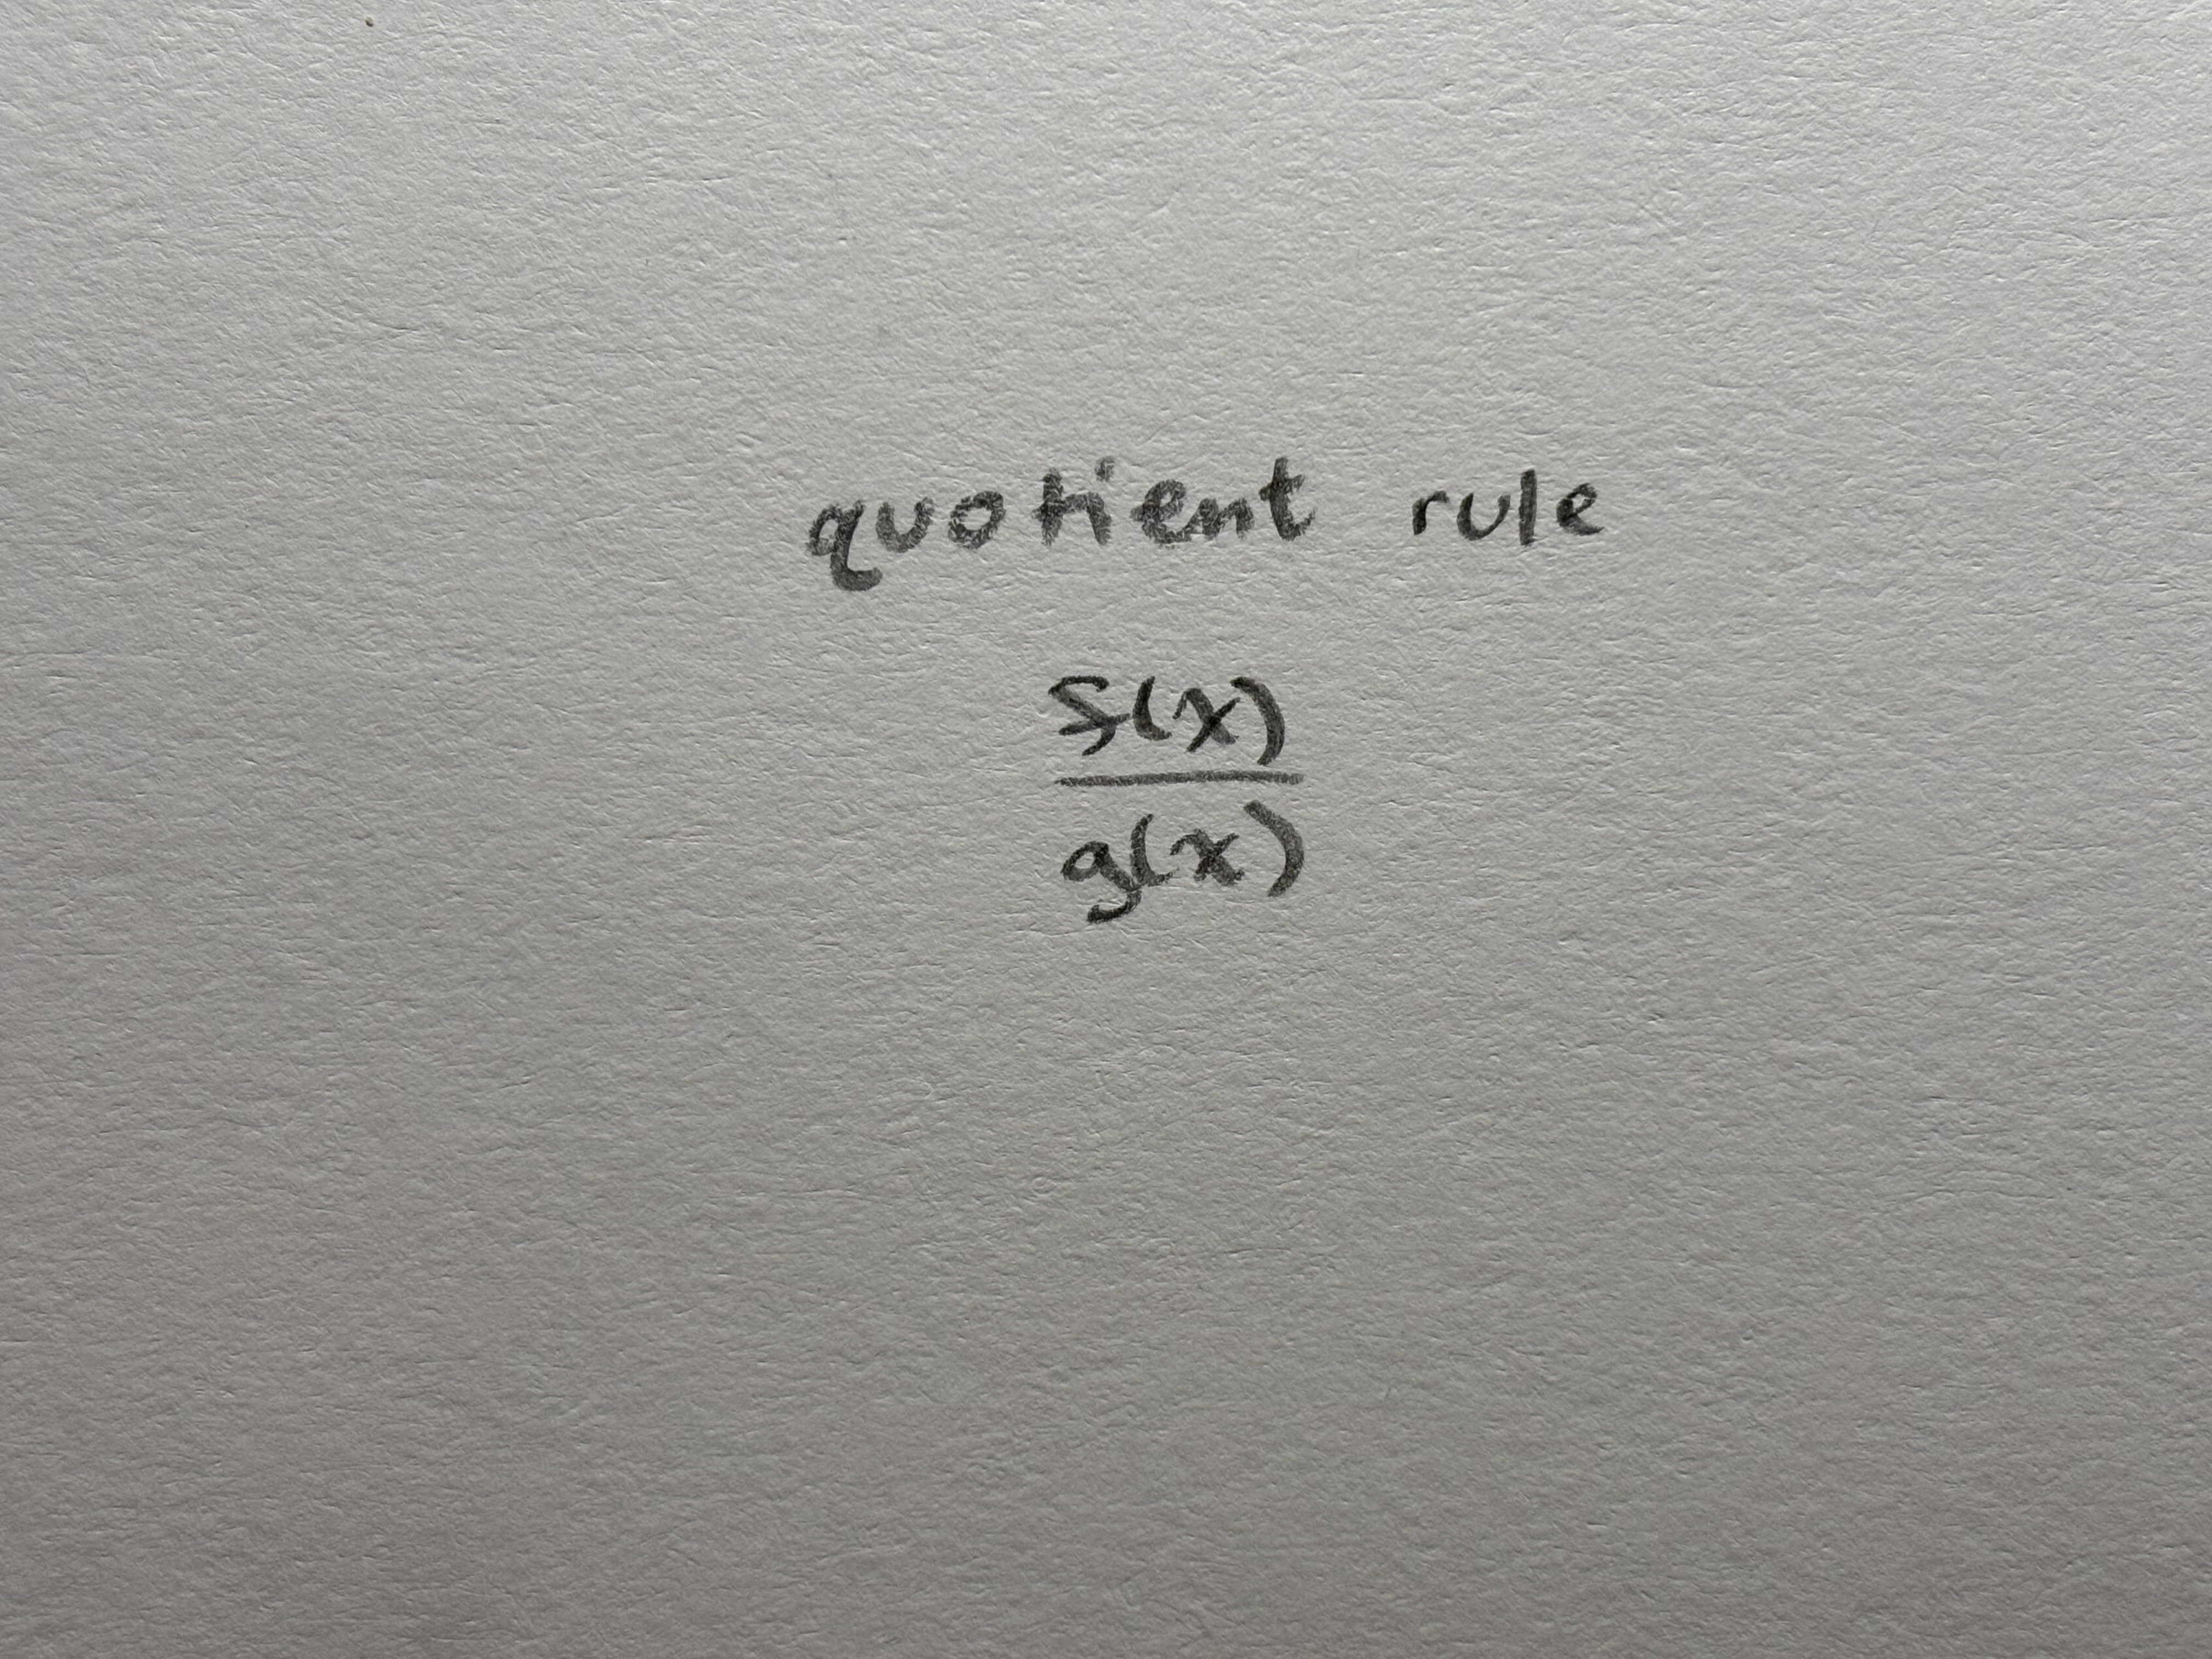 quotient rule
f(x)
g(x)